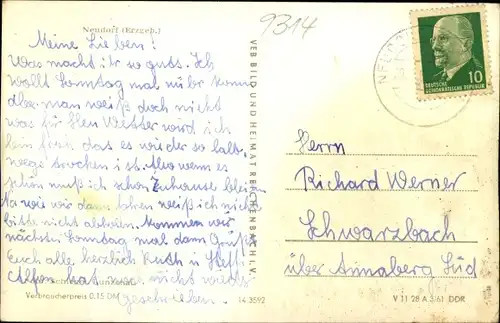 Neudorf (Erzgeb.)
9314
Meine Lieben!
Was macht ihr so gutes. Ich
wollt Sonntag mal rüber komm
aber man weiß doch nicht
was für Wetter wird ich
bin froh das es wieder so halb-
wege trocken ist. Also wenn es
schon muß ich schon Zuhause blei
da wie wir dann weiß ich nich
bitte nicht abholen. Kommen wir
nächsten Sonntag mal dann Grüße
Euch alle herzlich Ruth u.
hat nicht wieder
geschrieben.
Verbraucherpreis 0,15 DM
14 3592
VEB BILD UND HEIMAT REICHENBACH I. V.
10
DEUTSCHE
DEMOKRATISCHE REPUBLIK
Herrn
Richard Werner
Schwarzbach
über Annaberg Süd
V 11 28 A 3/61 DDR